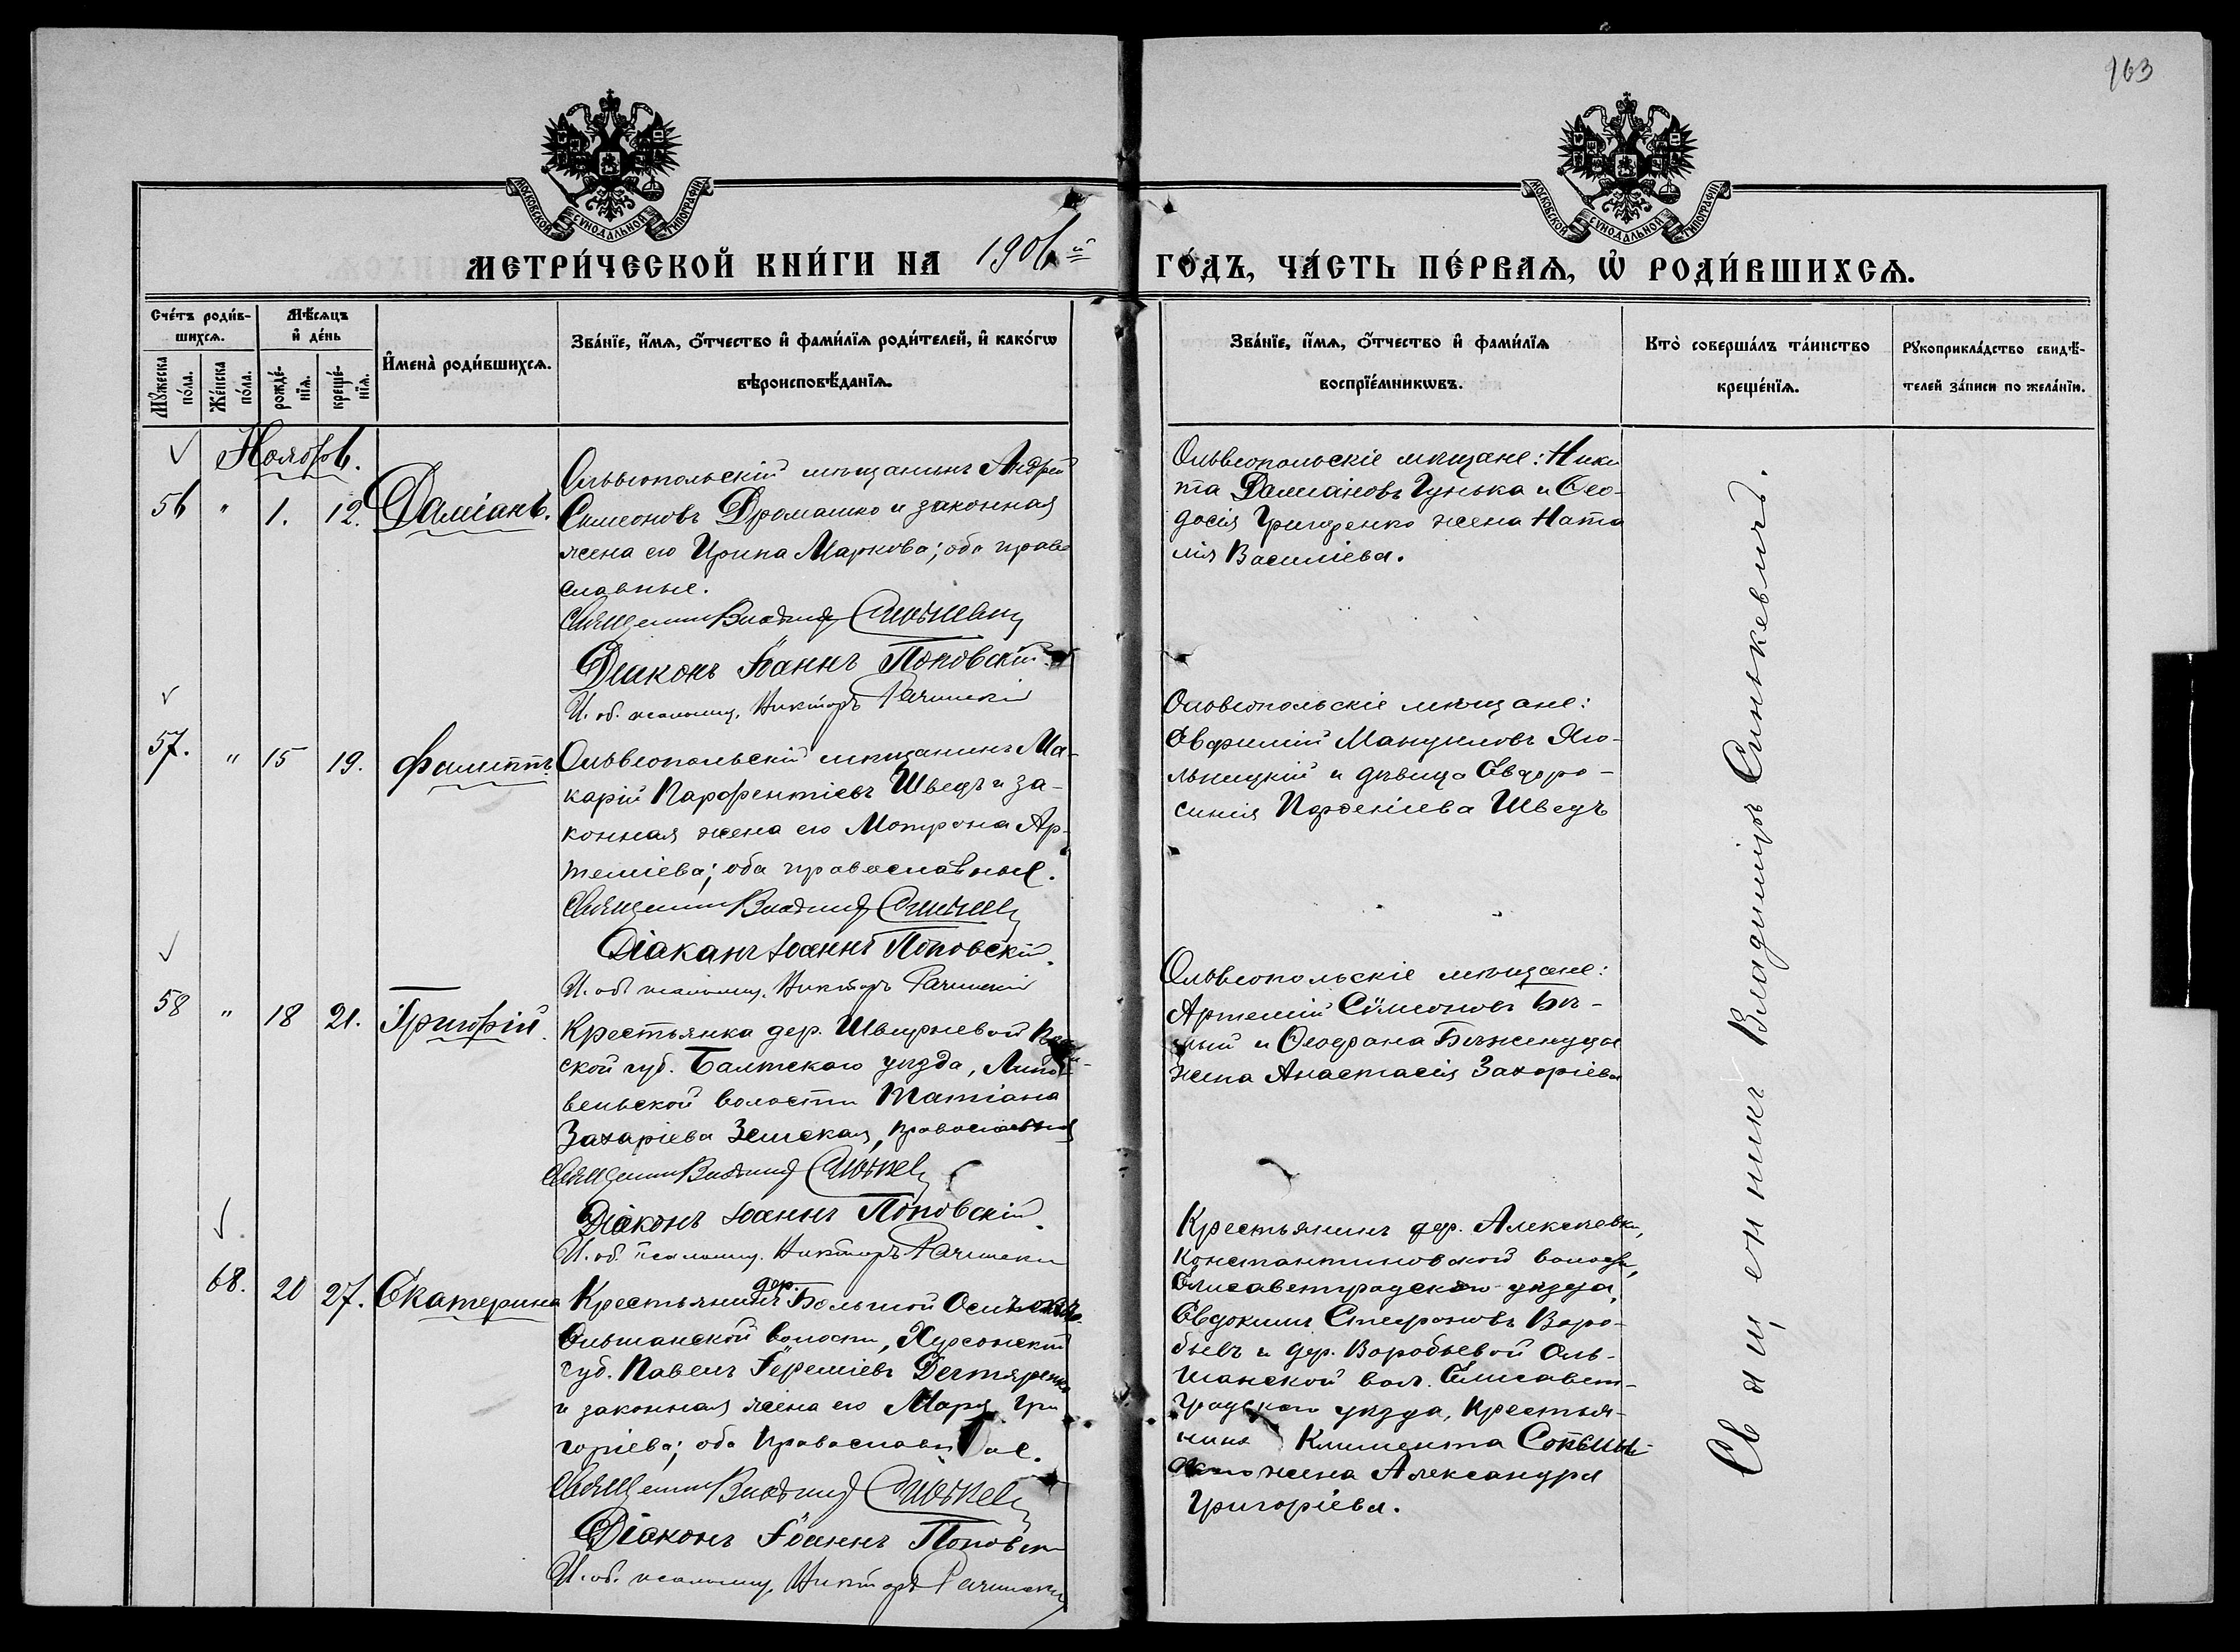 163
МОСКОВСКОЙ СѴНОДАЛЬНОЙ ТИПОГРАФІИ
МОСКОВСКОЙ СѴНОДАЛЬНОЙ ТИПОГРАФІИ
МЕТРИ́ЧЕСКОЙ КНИ́ГИ НА 1906й ГО́ДЪ, ЧА́СТЬ ПЕ́РВАѦ, Ѡ҆ РОДИ́ВШИХСѦ.
Сче́тъ роди́в-
шихсѧ.
Мꙋ́жеска по́ла.
Же́нска по́ла.
Мѣ́сѧцъ
и҆ де́нь
рожде́-
нїѧ.
креще́-
нїѧ.
И҆мена̀ роди́вшихсѧ.
Зва́нїе, и҆́мѧ, ѻ҆́тчество и҆ фами́лїѧ роди́телей, и҆ како́гѡ
вѣроисповѣ́данїѧ.
Зва́нїе, и҆́мѧ, ѻ҆́тчество и҆ фами́лїѧ
воспрїе́мникѡвъ.
Кто̀ соверша́лъ та́инство
креще́нїѧ.
Рꙋкоприкла́дство свидѣ́-
телей за́писи по жела́нїю.
Ноябрь.
56 " 1. 12. Даміанъ.
Ольвіопольскій мѣщанинъ Андрей
Симеоновъ Дромашко и законная
жена его Ирина Маркова; оба право
славные.
Священникъ Владиміръ Синькевичъ
Діаконъ Іоаннъ Поповскій
И. об. псаломщ. Викторъ Рачинскій
Ольвіопольскіе мѣщане: Ники
та Даміановъ Гунька и Ѳео-
досія Григоренко жена Ната
лія Василіева.
57. " 15 19. Филиппъ
Ольвіопольскій мѣщанинъ Ма-
карій Парфентіевъ Шведъ и за-
конная жена его Мотрона Ар-
теміева; оба православные.
Священникъ Владиміръ Синькевичъ
Діаконъ Іоаннъ Поповскій.
И. об. псаломщ. Викторъ Рачинскій
Ольвіопольскіе мѣщане:
Евфимій Мануиловъ Яго-
льницкій и дѣвица Евфро-
синія Парѳеніева Шведъ
58 " 18 21. Григорій.
Крестьянка дер. Швыревой
ской губ. Балтскаго уѣзда, Липо-
веньской волости Татіана
Захаріева Земская, православная
Священникъ Владиміръ Синькевичъ
Діаконъ Іоаннъ Поповскій.
И. об. псаломщ. Викторъ Рачински
Ольвіопольскіе мѣщане:
Артемій Сѵмеоновъ Бѣ-
лый и Ѳеофана Бѣженуца
жена Анастасія Захаріева
68. 20 27. Екатерина
Крестьянинъ дер. Большой Осички
Ольшанской волости, Херсонской
губ. Павелъ Іереміевъ Дегтяренко
и законная жена его Марія Гри
горіева; оба православные.
Священникъ Владиміръ Синькевичъ
Діаконъ Іоаннъ Поповски
И. об. псаломщ. Викторъ Рачински
Крестьянинъ дер. Алексѣевки,
Константиновской волости,
Елисаветградскаго уѣзда,
Евдокимъ Стефановъ Воро-
бьевъ и дер. Воробьевой Оль-
шанской вол. Елисавет-
градскаго уѣзда, крестья-
нина Климента
жена Александра
Григоріева.
Священникъ Владиміръ Синькевичъ.